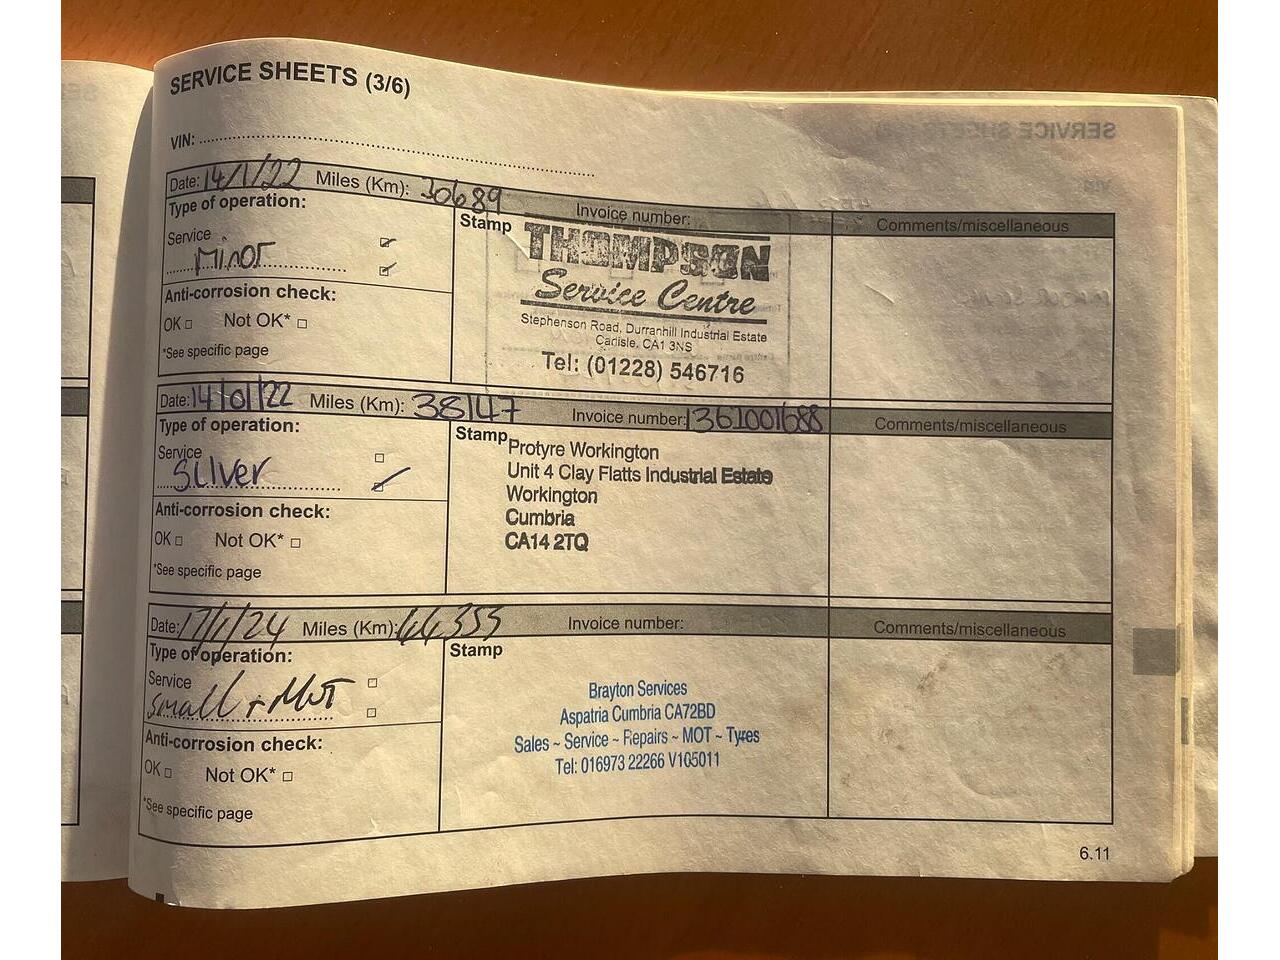 SERVICE SHEETS (3/6)
VIN:
Date: 14/1/22 Miles (Km): 30689 Invoice number: Comments/miscellaneous
Type of operation:
Service
Minor
Anti-corrosion check:
OK □ Not OK* □
*See specific page
Stamp
THOMPSON
Service Centre
Stephenson Road, Durranhill Industrial Estate
Carlisle, CA1 3NS
Tel: (01228) 546716
Date: 14/01/22 Miles (Km): 38147 Invoice number: 1361001688 Comments/miscellaneous
Type of operation:
Service
Silver
Anti-corrosion check:
OK □ Not OK* □
*See specific page
Stamp
Protyre Workington
Unit 4 Clay Flatts Industrial Estate
Workington
Cumbria
CA14 2TQ
Date: 17/1/24 Miles (Km): 44355 Invoice number: Comments/miscellaneous
Type of operation:
Service
Small + MOT
Anti-corrosion check:
OK □ Not OK* □
*See specific page
Stamp
Brayton Services
Aspatria Cumbria CA72BD
Sales ~ Service ~ Repairs ~ MOT ~ Tyres
Tel: 016973 22266 V105011
6.11